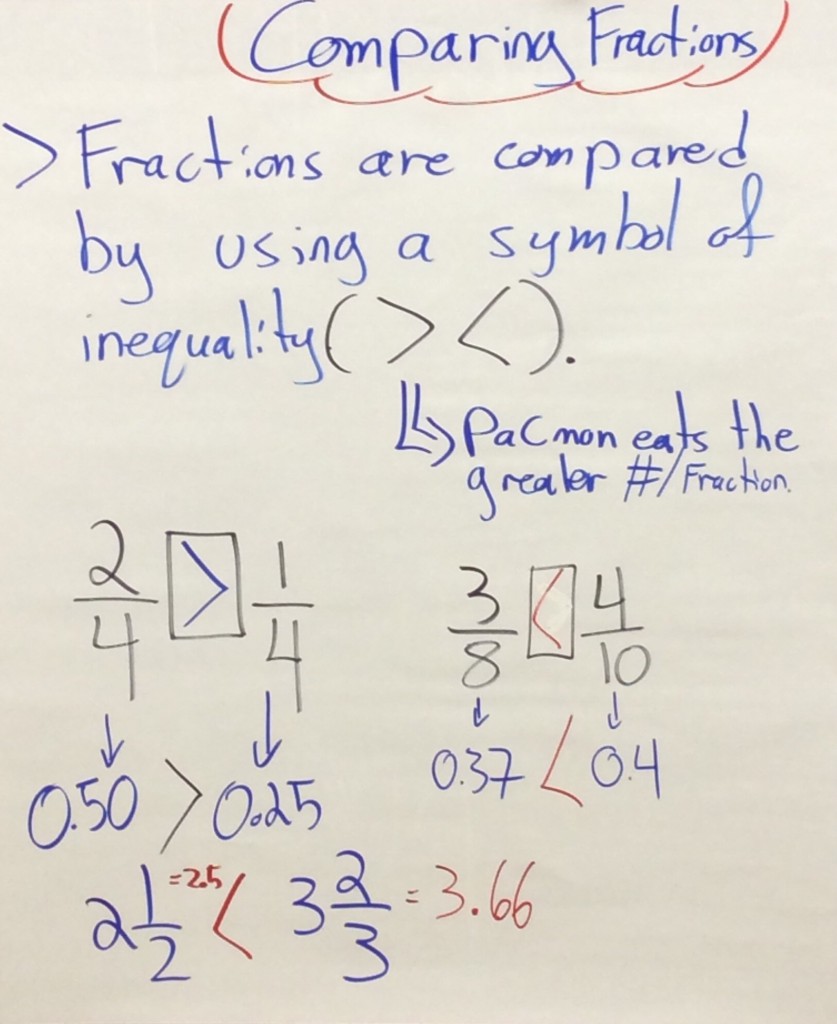 Comparing Fractions
> Fractions are compared
by using a symbol of
inequality (> <).
PaCmon eats the
greater #/Fraction.
2/4 > 1/4
3/8 < 4/10
0.50 > 0.25
0.37 < 0.4
2 1/2 =2.5 < 3 2/3 = 3.66